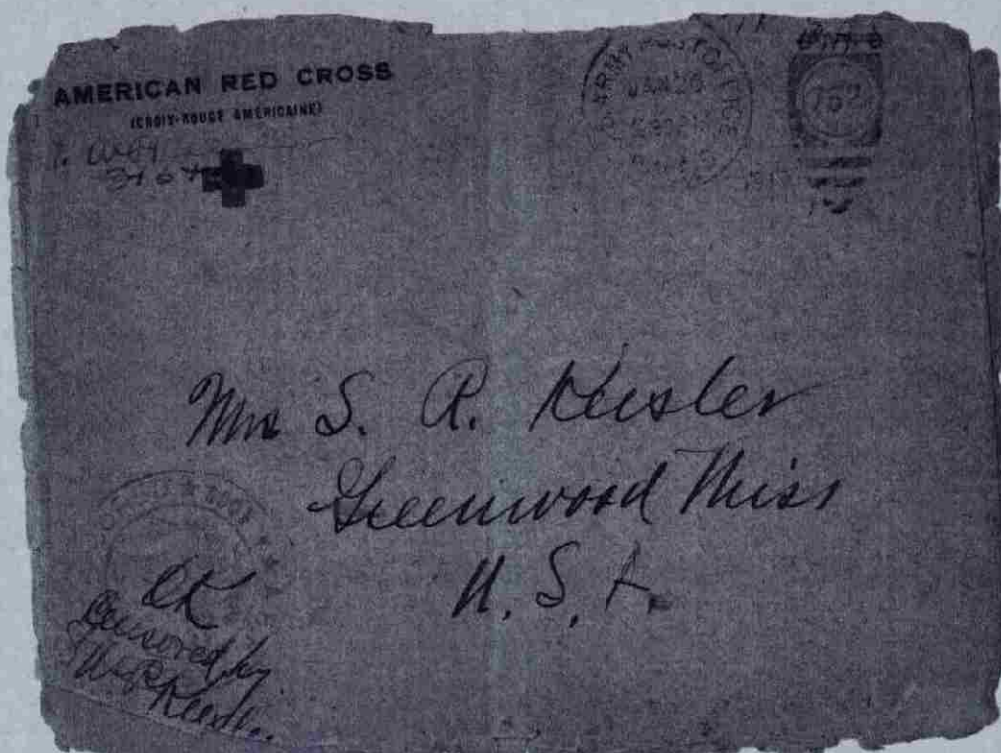 AMERICAN RED CROSS
(CROIX-ROUGE AMÉRICAINE)
ARMY POST OFFICE
JAN 26
762
Mrs S. R. Keesler
Greenwood Miss
U. S. A.
OK
Censored by